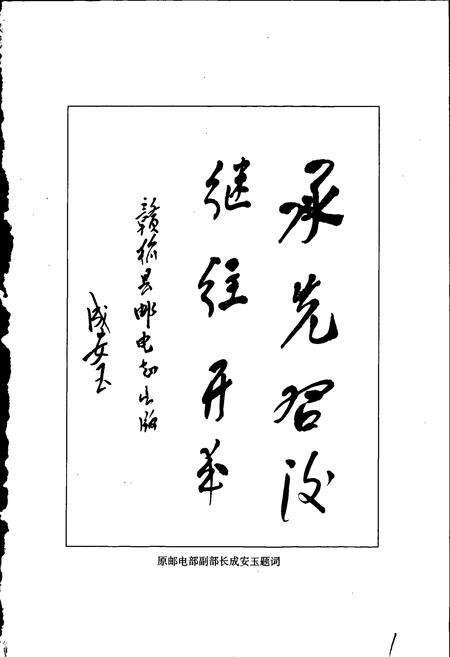 承先启後
继往开来
赣榆县邮电志出版
成安玉
原邮电部副部长成安玉题词
1